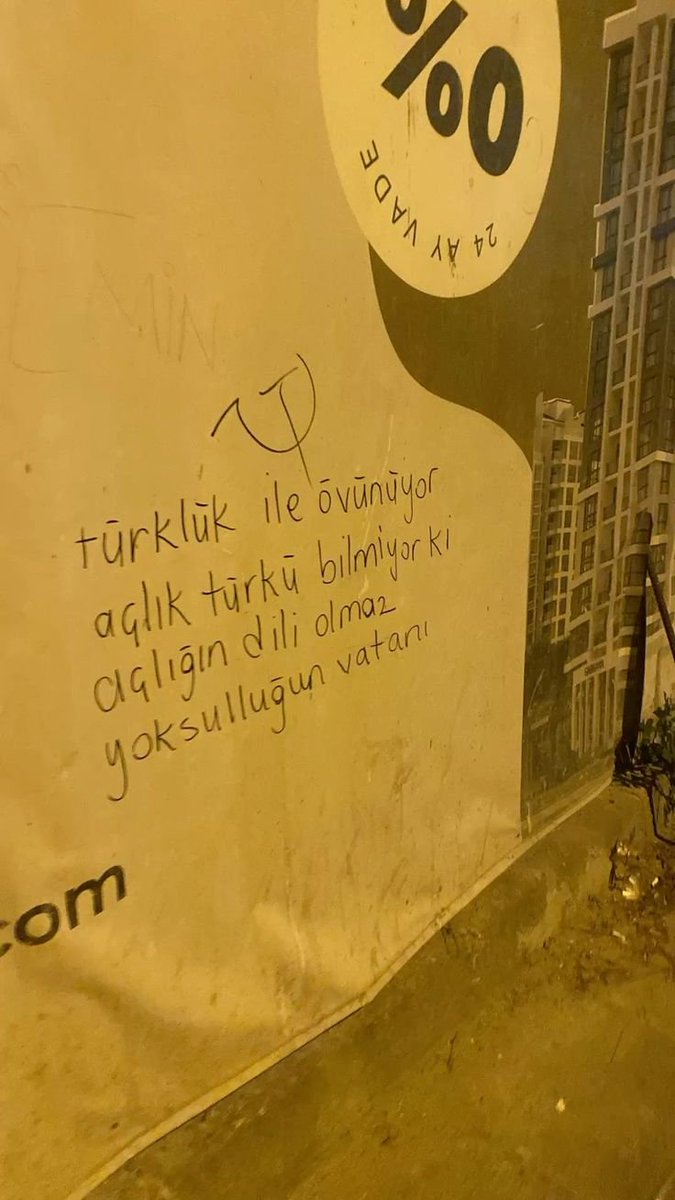 %0
24 AY VADE
MİN
türklük ile övünüyor
açlık türkü bilmiyor ki
açlığın dili olmaz
yoksulluğun vatanı
com